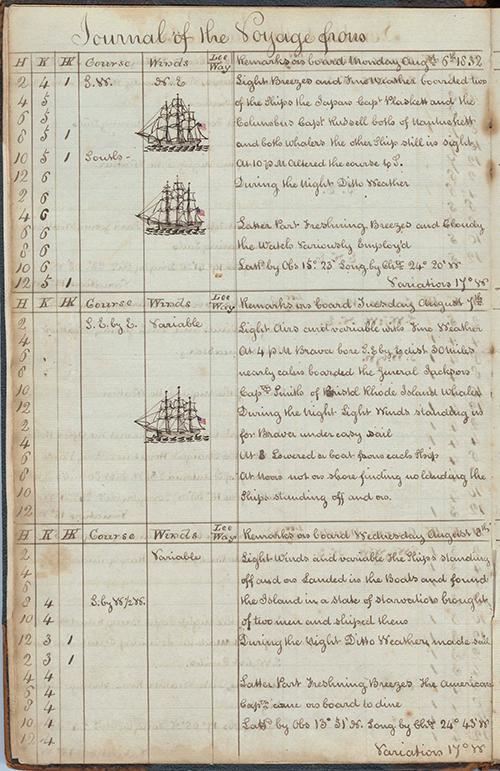 Journal of the Voyage from
H K HK Course Winds Lee Way Remarks on board Monday Augst 6th 1832
2 4 1 S.W. N.E Light Breezes and Fine Weather boarded two
4 5 of the Ships the Japan Capt Plaskett and the
6 5 Columbus Capt Russell both of Nantuckett
8 5 1 and both whalers the other Ship still in sight
10 5 1 South- At 10 P M Altered the course to S.
12 6 During the Night Ditto Weather
2 6
4 6 Latter Part Freshning Breezes and Cloudy
6 6 the Watch Variously Employ'd
8 6
10 6 Latt by Obs 15° 23' Long by Chr 24° 20' W
12 5 1 Variation 17° W
H K HK Course Winds Lee Way Remarks on board Tuesday August 7th
2 S.E. by E. Variable Light Airs and variable with Fine Weather
4
6 At 4 P M Brava bore S.E by E dist 30 miles
8 nearly calm boarded the General Jackson
10 Capt Smith of Bristol Rhode Island Whaler
12 During the Night Light Winds standing in
2 for Brava under easy sail
4
6 At 8 Lowered a boat from each Ship
8 At Noon not on shore finding no landing the
10 Ships standing off and on.
12
H K HK Course Winds Lee Way Remarks on board Wednesday August 8th
2 Variable Light Winds and variable the Ships standing
4
6 off and on Landed in the Boats and found
8 4 S. by W ½ W. the Island in a state of starvation brought
10 4 of two men and shiped them
12 3 1 During the Night Ditto Weather, made sail
2 3 1
4 4 Latter Part Freshning Breezes the American
6 4
8 4 Capt came on board to dine
10 4 Latt by Obs 13° 51' N. Long by Chr 24° 43' W
12 4 Variation 17° W